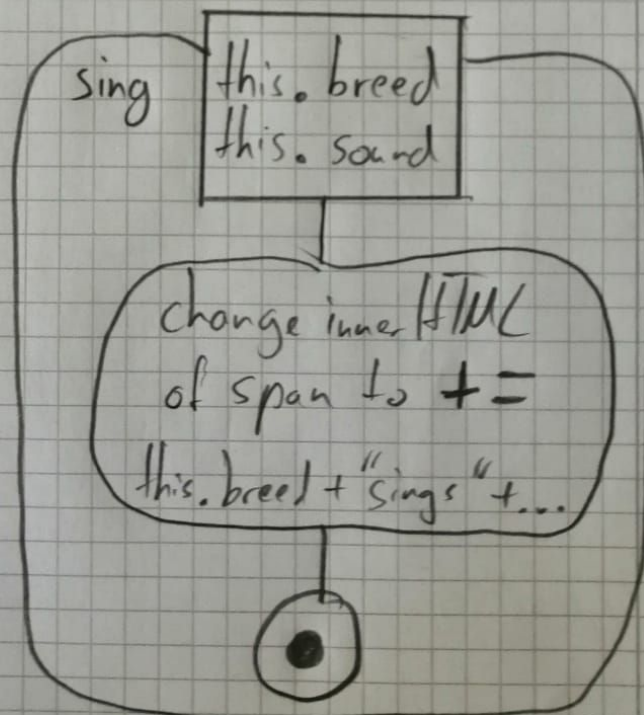 sing
this. breed
this. sound
change inner HTML
of span to +=
this.breed + "sings" + ...